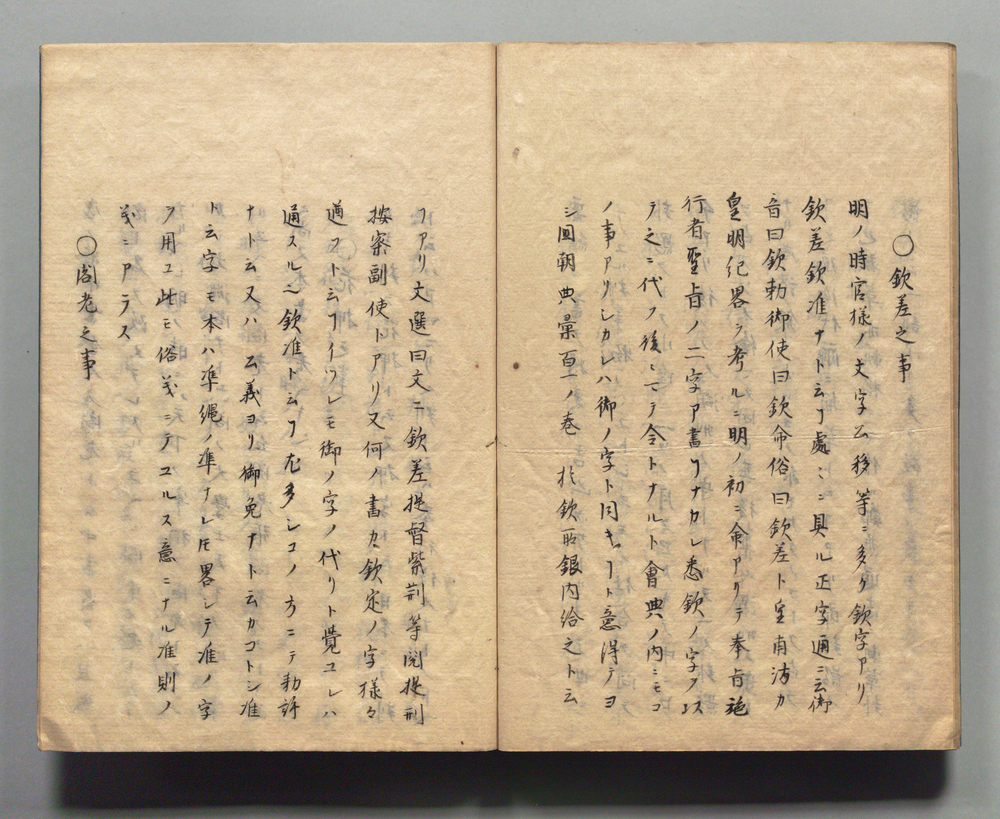 〇欽差之事
明ノ時官様ノ文字公移等ニ多ク欽字アリ
欽差欽准ナト云ヿ處〻ニ見ル正字通ニ云御
音曰欽勅御使曰欽命俗曰欽差ト皇甫汸カ
皇明紀畧ヲ考ルニ明ノ初ニ命アリテ奉旨施
行者聖旨ノ二字ヲ書ヿナカレ悉欽ノ字ヲ以
テ之ニ代フ後〻マテ令トナルト會典ノ内ニモコ
ノ事アリシカレハ御ノ字ト同キヿト意得テヨ
シ回朝典彙百一ノ巻 於欽取銀内給之ト云
ヿアリ文選曰文ニ欽差提督紫荊等関提刑
按察副使トアリ又何ノ書カ欽定ノ字様々
適フト云ヿイツレモ御ノ字ノ代リト覺ユレハ
通スル也欽准ト云ヿ尤多シコノ方ニテ勅許
ナト云又ハ公義ヨリ御免ナト云カコトシ准
ト云字モ本ハ準縄ノ準ナレ𪜈畧シテ准ノ字
ヲ用ユ此モ俗義ニテユルス意ニナル准則ノ
義ニアラス
〇閣老之事